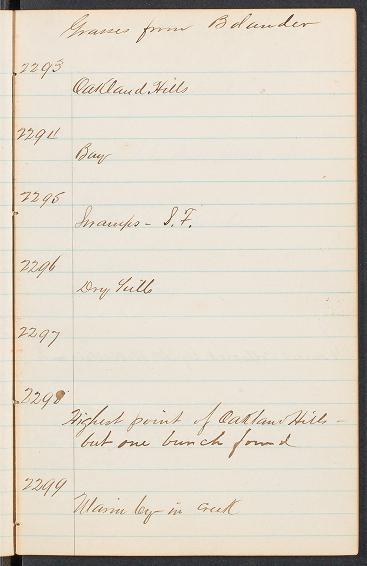 Grasses from Bolander
2293
Oakland Hills
2294
Bay
2295
Swamps - S.F.
2296
Dry hills
2297
2298
Highest point of Oakland Hills -
but one bunch found
2299
Marin Co - in creek